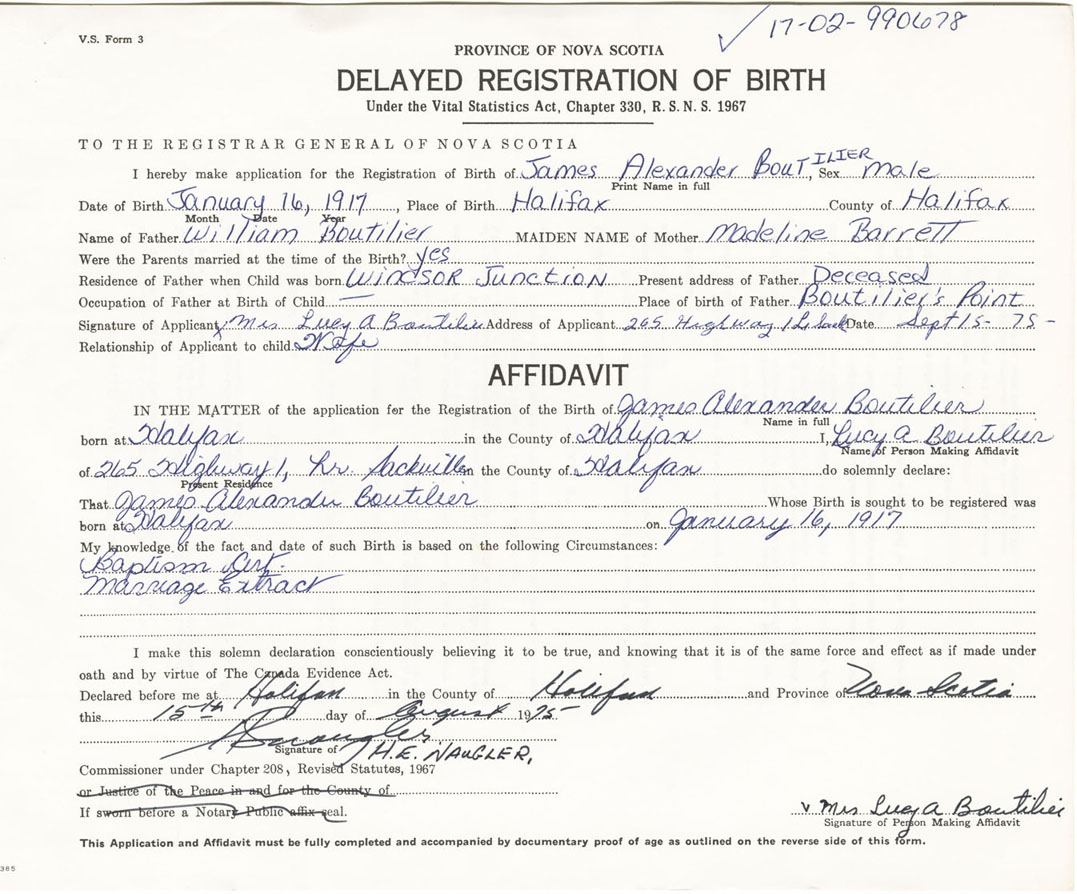 17-02-990678
V.S. Form 3
PROVINCE OF NOVA SCOTIA
DELAYED REGISTRATION OF BIRTH
Under the Vital Statistics Act, Chapter 330, R. S. N. S. 1967
TO THE REGISTRAR GENERAL OF NOVA SCOTIA
I hereby make application for the Registration of Birth of James Alexander BouTILIER, Sex male
Print Name in full
Date of Birth January 16, 1917, Place of Birth Halifax County of Halifax
Month Date Year
Name of Father William Boutilier MAIDEN NAME of Mother Madeline Barrett
Were the Parents married at the time of the Birth? yes
Residence of Father when Child was born Windsor Junction Present address of Father Deceased
Occupation of Father at Birth of Child — Place of birth of Father Boutilier's Point
Signature of Applicant Mrs Lucy A Boutilier Address of Applicant 265 Highway 1 Date Sept 15 - 75 -
Relationship of Applicant to child Wife
AFFIDAVIT
IN THE MATTER of the application for the Registration of the Birth of James Alexander Boutilier
Name in full
born at Halifax in the County of Halifax I, Lucy A Boutilier
Name of Person Making Affidavit
of 265 Highway 1, Lr. Sackville in the County of Halifax do solemnly declare:
Present Residence
That James Alexander Boutilier Whose Birth is sought to be registered was
born at Halifax on January 16, 1917
My knowledge of the fact and date of such Birth is based on the following Circumstances:
Baptism Cert.
Marriage Extract
I make this solemn declaration conscientiously believing it to be true, and knowing that it is of the same force and effect as if made under
oath and by virtue of The Canada Evidence Act.
Declared before me at Halifax in the County of Halifax and Province of Nova Scotia
this 15th day of August 1975
Signature of H.E. NAUGLER,
Commissioner under Chapter 208, Revised Statutes, 1967
or Justice of the Peace in and for the County of
If sworn before a Notary Public affix seal.
Mrs Lucy A Boutilier
Signature of Person Making Affidavit
This Application and Affidavit must be fully completed and accompanied by documentary proof of age as outlined on the reverse side of this form.
385